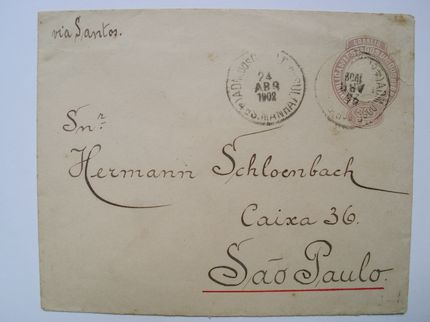 via Santos.
24
ABR
1902
Snr.
Hermann Schloenbach
Caixa 36.
São Paulo.